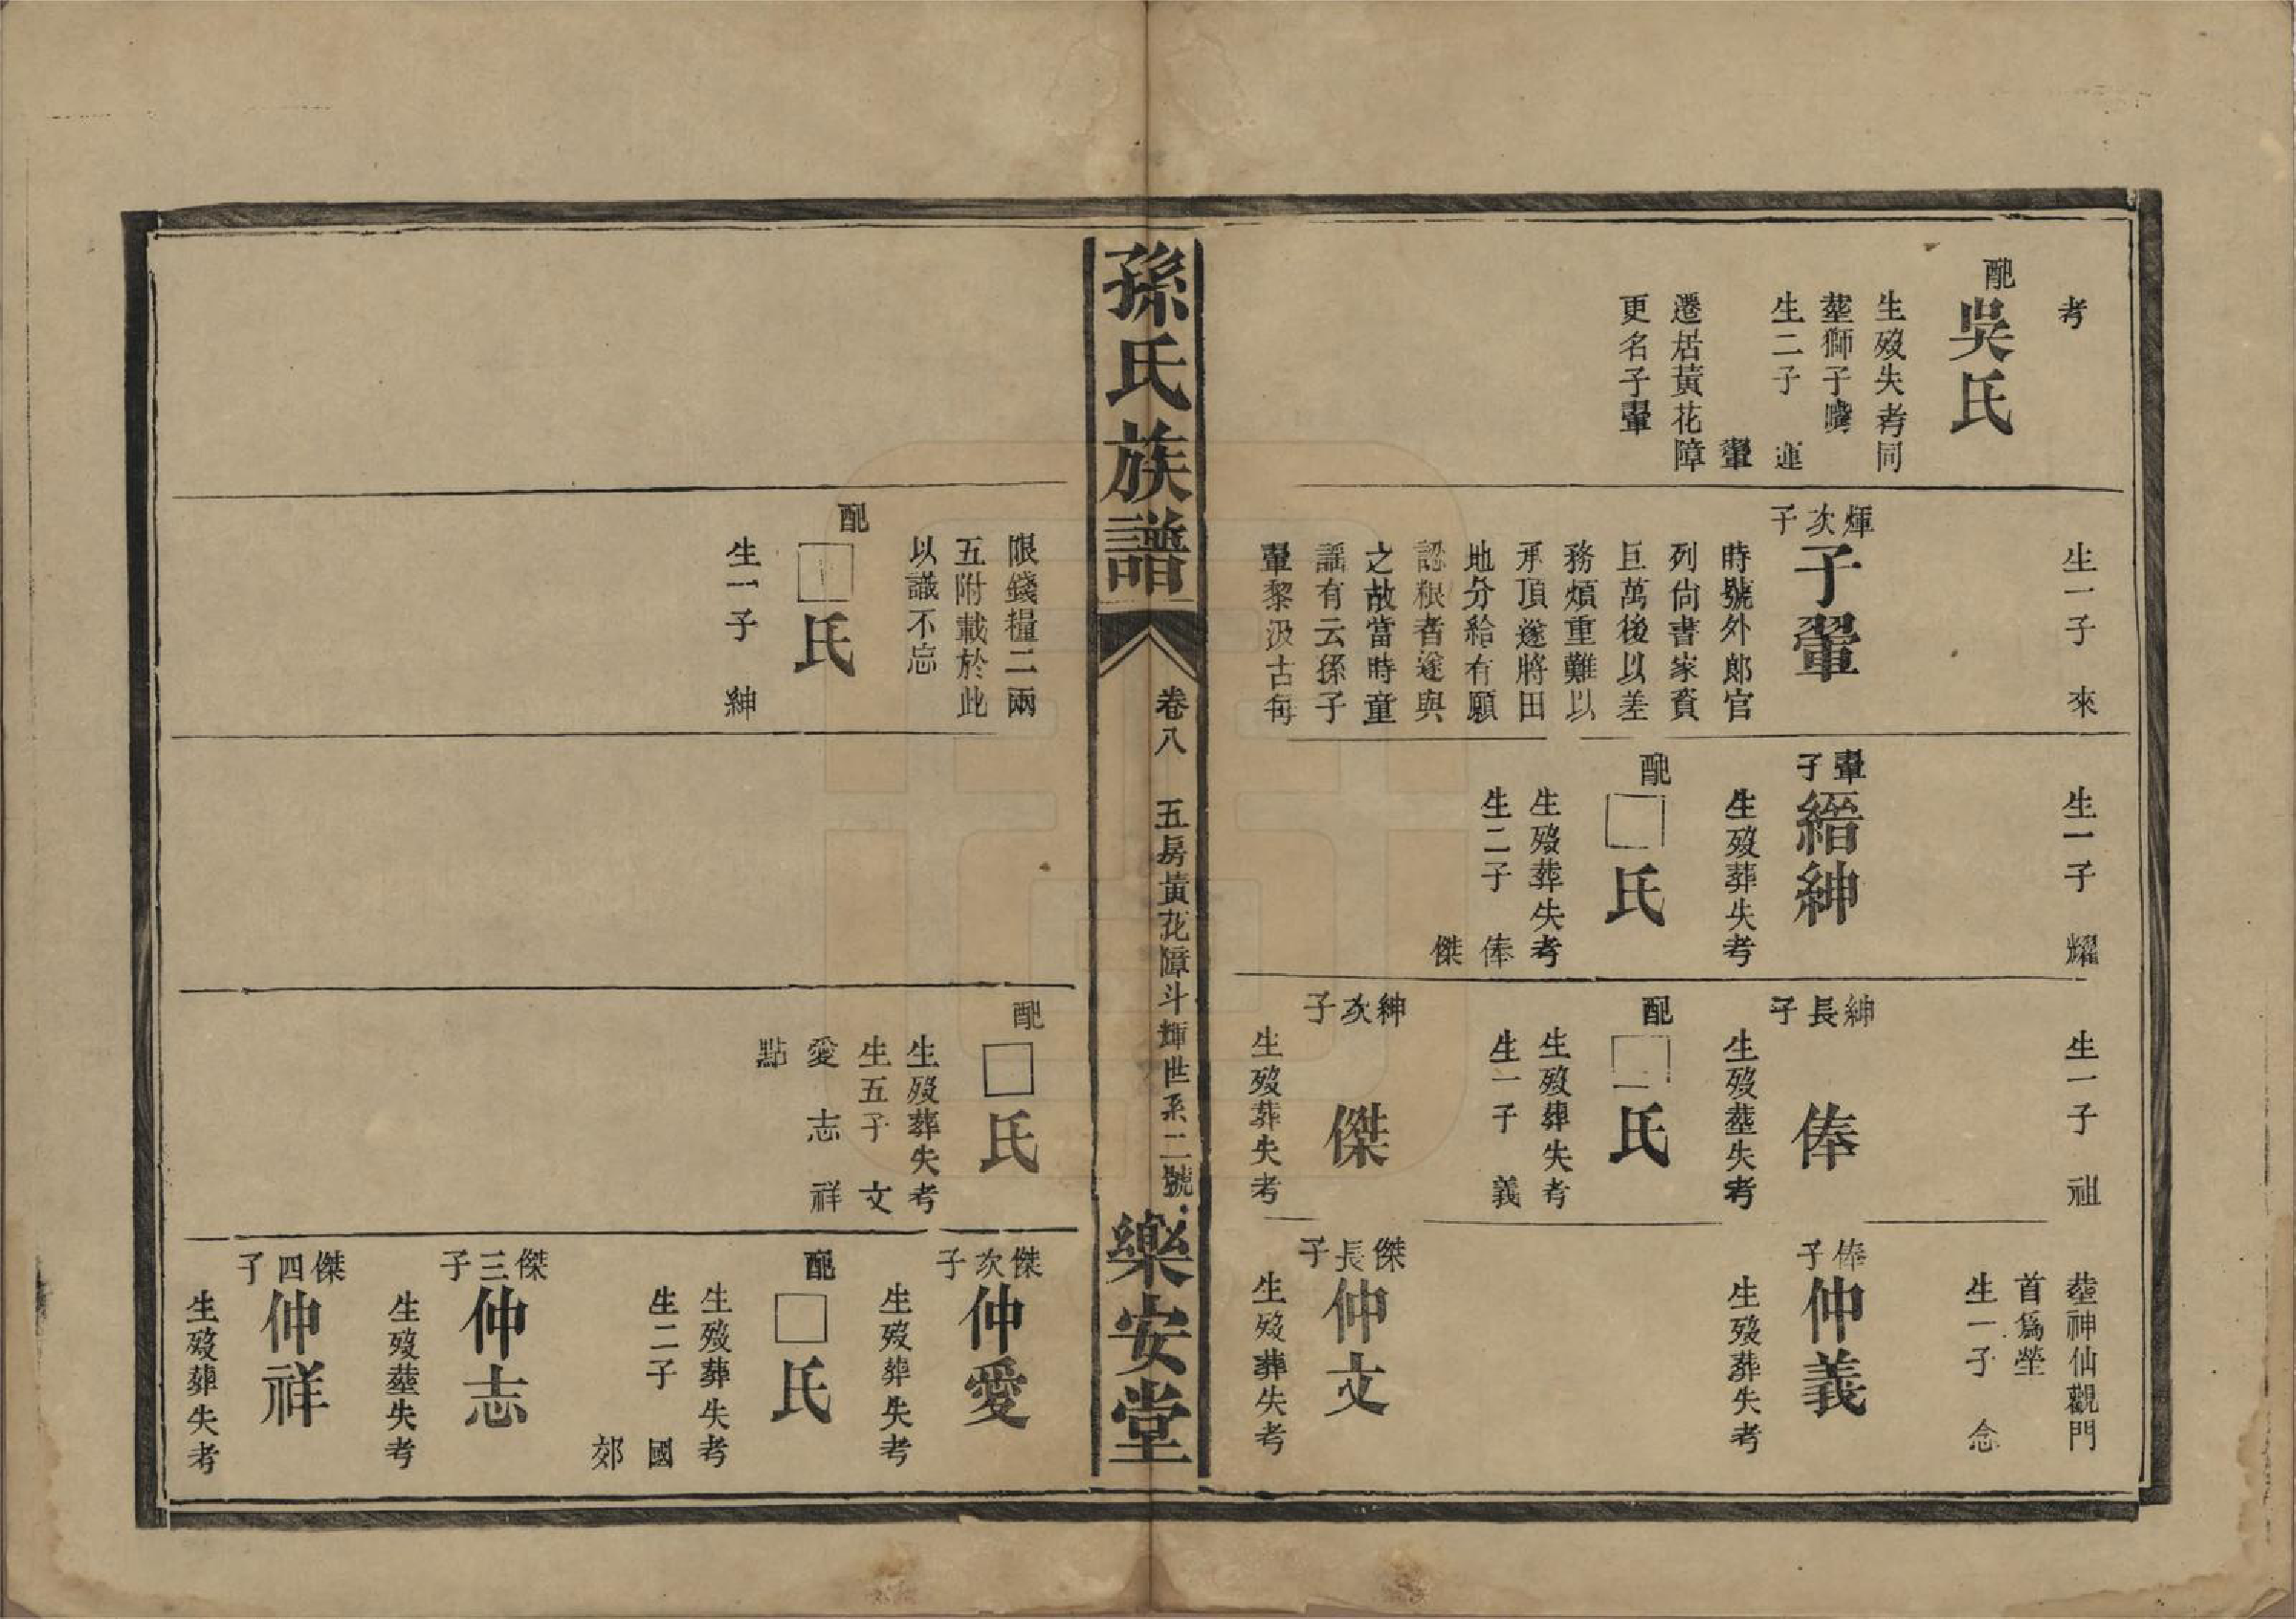 考
配
吳氏
生歿失考同
塟獅子嘴
生二子 運
鞏
遷居黃花障
更名子鞏
生一子 來
煇次子
子鞏
時號外郎官
列尙書家資
巨萬後以差
務煩重難以
承頂遂將田
地分給有願
認粮者遂與
之故當時童
謡有云孫子
鞏黎汲古每
生一子 耀
鞏子
縉紳
生歿葬失考
配
□氏
生歿葬失考
生二子 俸
傑
生一子 祖
紳長子
俸
生歿塟失考
配
□氏
生歿葬失考
生一子 義
紳次子
傑
生歿葬失考
塟神仙觀門
首爲塋
生一子 念
俸子
仲義
生歿葬失考
傑長子
仲文
生歿葬失考
孫氏族譜
卷八
五房黃花障斗煇世系二號
樂安堂
限錢糧二兩
五附載於此
以識不忘
配
□氏
生一子 紳
配
□氏
生歿葬失考
生五子 文
愛 志 祥
點
傑次子
仲愛
生歿葬失考
配
□氏
生歿葬失考
生二子 國
郊
傑三子
仲志
生歿塟失考
傑四子
仲祥
生歿葬失考